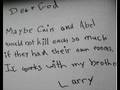 Dear God
Maybe Cain and Abel
would not kill each so much
if they had their own rooms.
It works with my brother
Larry